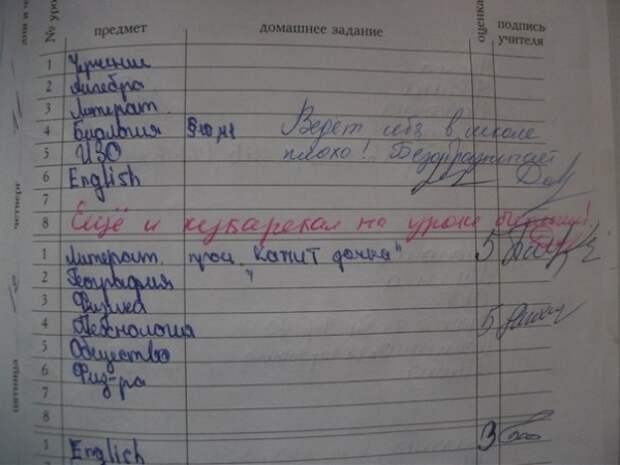 № уро
предмет
домашнее задание
оценка
подпись учителя
1 Черчение
2 Алгебра
3 Литерат.
4 Биология §40, 41 Ведет себя в школе
5 ИЗО плохо! Безобразничает
6 English
7
8 Ещё и кукарекал на уроке
1 Литерат. проч. "Капит дочка" 5
2 География "
3 Физика
4 Технология 5
5 Общество
6 Физ-ра
7
8
1 English 3